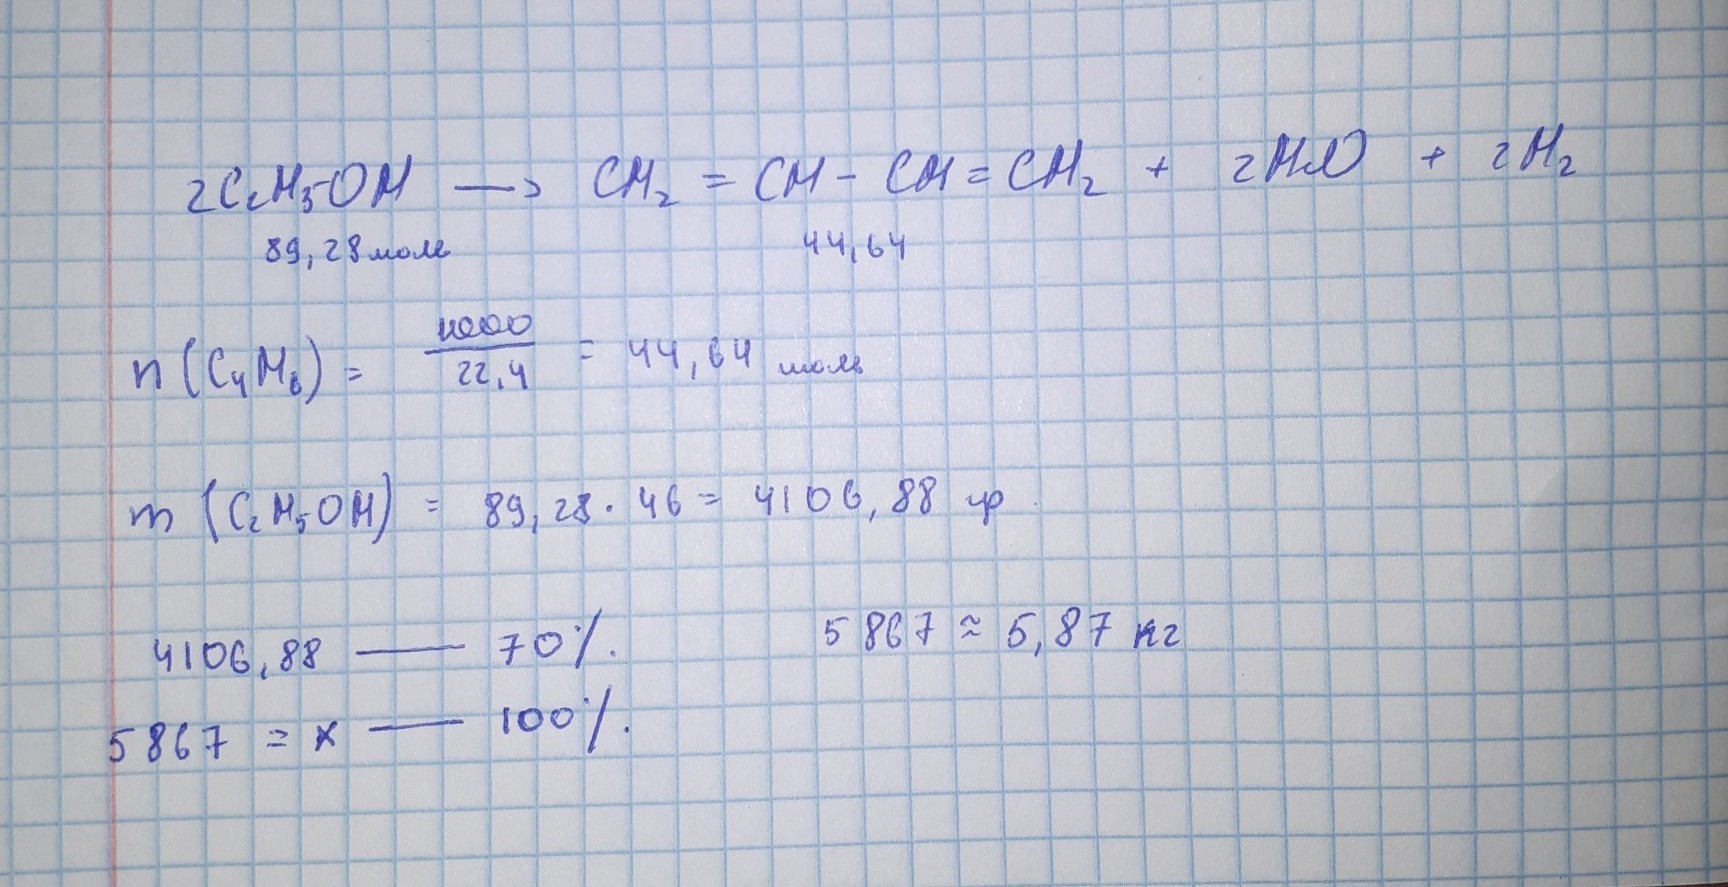 2C₂H₅OH —> CH₂ = CH - CH = CH₂ + 2H₂O + 2H₂
89,28 моль 44,64
n (C₄H₆) = 1000/22,4 = 44,64 моль
m (C₂H₅OH) = 89,28 · 46 = 4106,88 гр
4106,88 — 70%. 5867 ≈ 5,87 кг
5867 = x — 100%.